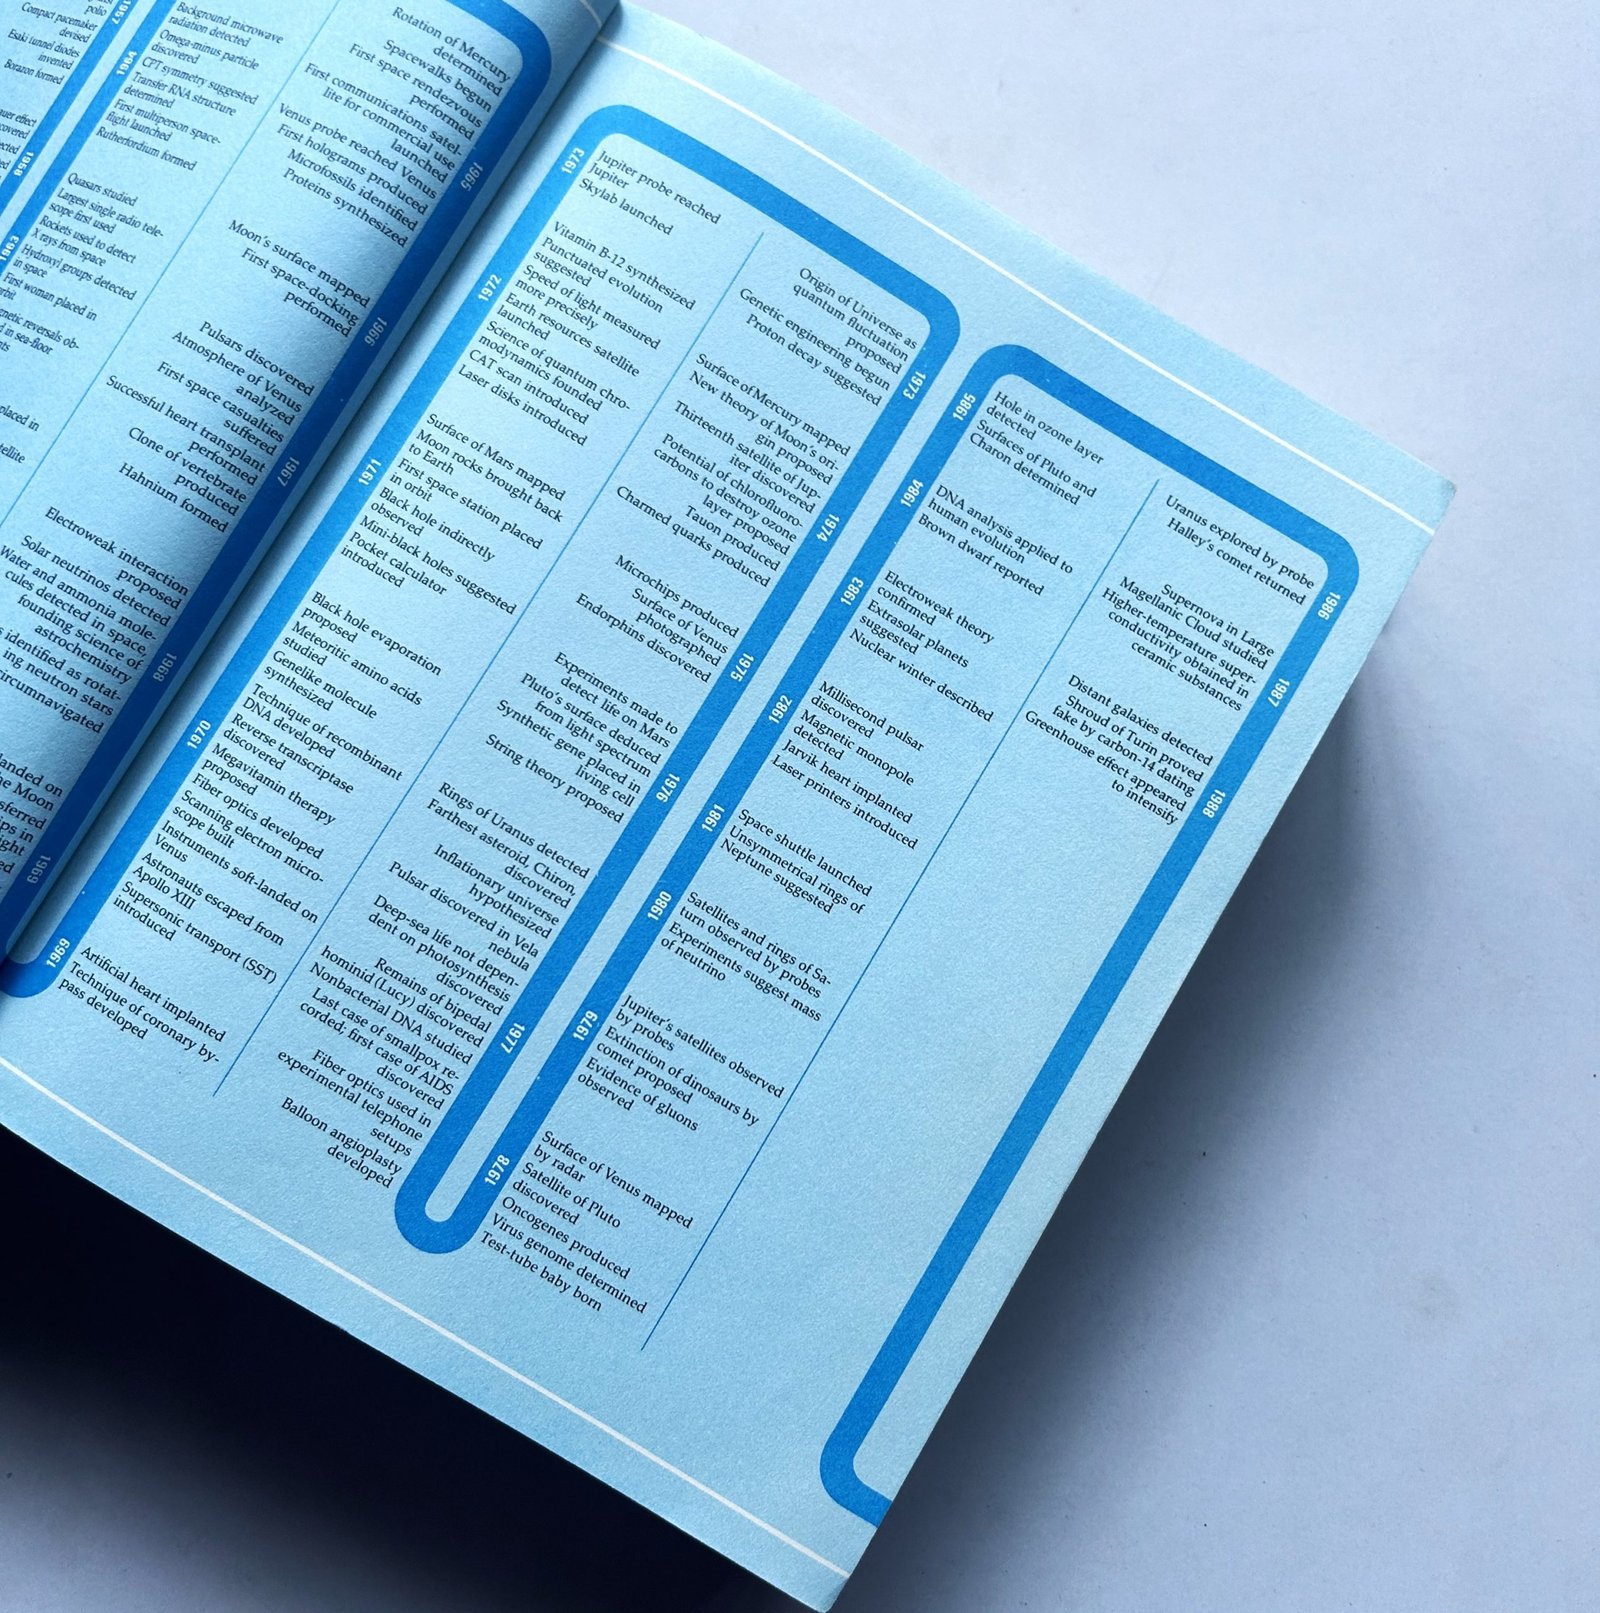 polio
Compact pacemaker
devised
Esaki tunnel diodes
invented
Borazon formed
1957
1958
1964
Background microwave
radiation detected
Omega-minus particle
discovered
CPT symmetry suggested
Transfer RNA structure
determined
First multiperson space-
flight launched
Rutherfordium formed
1963
Quasars studied
Largest single radio tele-
scope first used
Rockets used to detect
X rays from space
Hydroxyl groups detected
in space
First woman placed in
orbit
in sea-floor
placed in
Rotation of Mercury
determined
Spacewalks begun
First space rendezvous
performed
First communications satel-
lite for commercial use
launched
Venus probe reached Venus
First holograms produced
Microfossils identified
Proteins synthesized
1965
Moon's surface mapped
First space-docking
performed
1966
Pulsars discovered
Atmosphere of Venus
analyzed
First space casualties
suffered
Successful heart transplant
performed
Clone of vertebrate
produced
Hahnium formed
1967
Electroweak interaction
proposed
Solar neutrinos detected
Water and ammonia mole-
cules detected in space,
founding science of
astrochemistry
identified as rotat-
ing neutron stars
circumnavigated
1968
landed on
the Moon
in
1969
1969
Artificial heart implanted
Technique of coronary by-
pass developed
1970
Black hole evaporation
proposed
Meteoritic amino acids
studied
Genelike molecule
synthesized
Technique of recombinant
DNA developed
Reverse transcriptase
discovered
Megavitamin therapy
proposed
Fiber optics developed
Scanning electron micro-
scope built
Instruments soft-landed on
Venus
Astronauts escaped from
Apollo XIII
Supersonic transport (SST)
introduced
1971
Surface of Mars mapped
Moon rocks brought back
to Earth
First space station placed
in orbit
Black hole indirectly
observed
Mini-black holes suggested
Pocket calculator
introduced
1972
Vitamin B-12 synthesized
Punctuated evolution
suggested
Speed of light measured
more precisely
Earth resources satellite
launched
Science of quantum chro-
modynamics founded
CAT scan introduced
Laser disks introduced
1973
Jupiter probe reached
Jupiter
Skylab launched
Origin of Universe as
quantum fluctuation
proposed
Genetic engineering begun
Proton decay suggested
1973
Surface of Mercury mapped
New theory of Moon's ori-
gin proposed
Thirteenth satellite of Jup-
iter discovered
Potential of chlorofluoro-
carbons to destroy ozone
layer proposed
Tauon produced
Charmed quarks produced
1974
Microchips produced
Surface of Venus
photographed
Endorphins discovered
1975
Experiments made to
detect life on Mars
Pluto's surface deduced
from light spectrum
Synthetic gene placed in
living cell
String theory proposed
1976
Rings of Uranus detected
Farthest asteroid, Chiron,
discovered
Inflationary universe
hypothesized
Pulsar discovered in Vela
nebula
Deep-sea life not depen-
dent on photosynthesis
discovered
Remains of bipedal
hominid (Lucy) discovered
Nonbacterial DNA studied
Last case of smallpox re-
corded; first case of AIDS
discovered
Fiber optics used in
experimental telephone
setups
Balloon angioplasty
developed
1977
1978
Surface of Venus mapped
by radar
Satellite of Pluto
discovered
Oncogenes produced
Virus genome determined
Test-tube baby born
1979
Jupiter's satellites observed
by probes
Extinction of dinosaurs by
comet proposed
Evidence of gluons
observed
1980
Satellites and rings of Sa-
turn observed by probes
Experiments suggest mass
of neutrino
1981
Space shuttle launched
Unsymmetrical rings of
Neptune suggested
1982
Millisecond pulsar
discovered
Magnetic monopole
detected
Jarvik heart implanted
Laser printers introduced
1983
Electroweak theory
confirmed
Extrasolar planets
suggested
Nuclear winter described
1984
DNA analysis applied to
human evolution
Brown dwarf reported
1985
Hole in ozone layer
detected
Surfaces of Pluto and
Charon determined
Uranus explored by probe
Halley's comet returned
1986
Supernova in Large
Magellanic Cloud studied
Higher-temperature super-
conductivity obtained in
ceramic substances
1987
Distant galaxies detected
Shroud of Turin proved
fake by carbon-14 dating
Greenhouse effect appeared
to intensify
1988